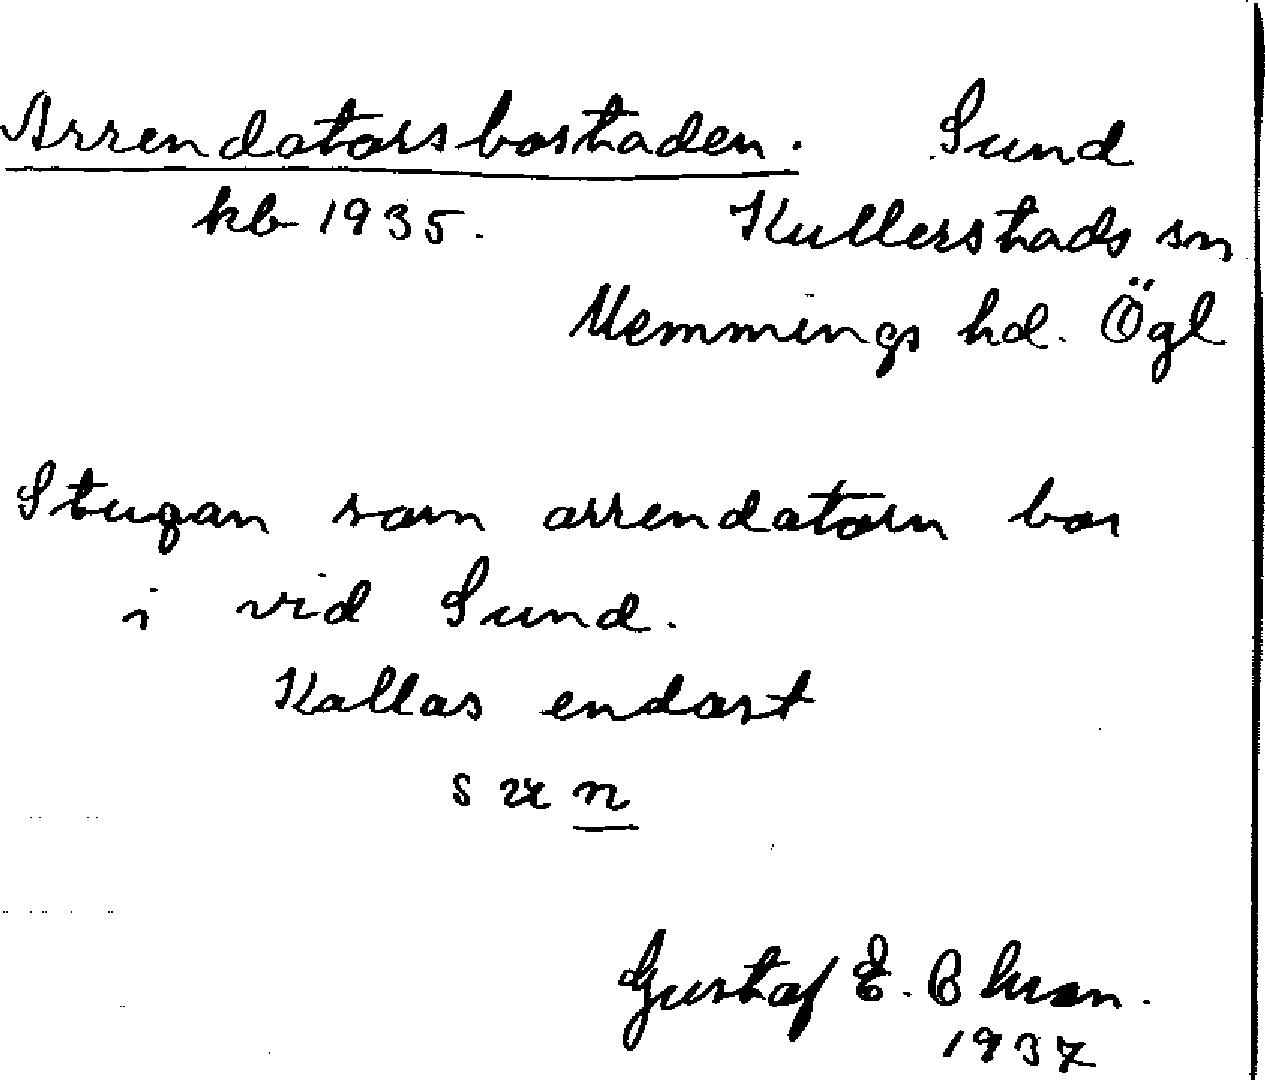 Arrendatorsbostaden. Sund
kb 1935. Kullerstads sn
Memmings hd. Ögl
Stugan som arrendatorn bor
i vid Sund.
Kallas endast
Gustaf E.
1937